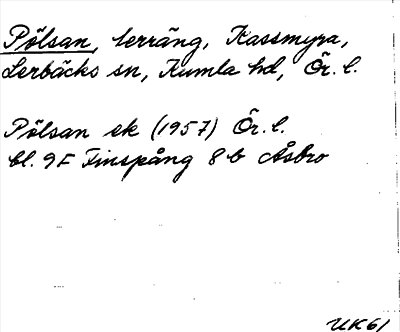 Pölsan, terräng, Kassmyra,
Lerbäcks sn, Kumla hd, Ör. l.
Pölsan ek (1957) Ör. l.
bl. 9F Finspång 8 b Åsbro
UK61